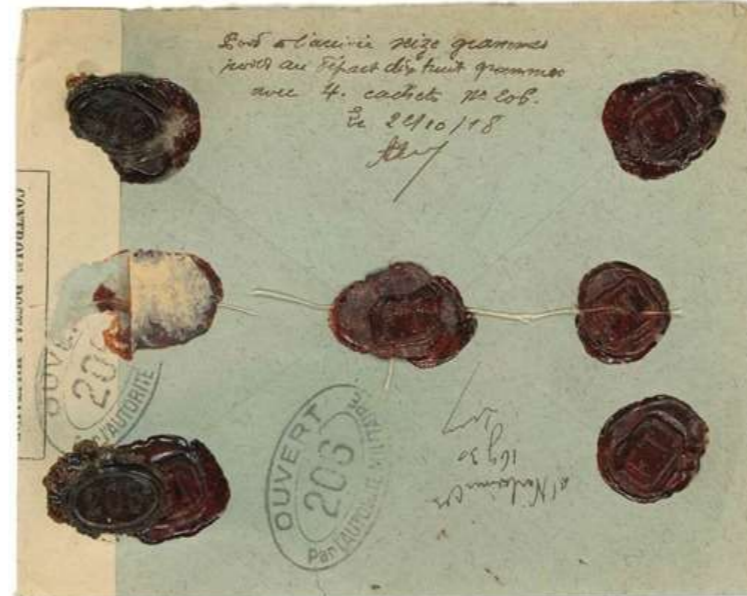 Poids à l'arrivée seize grammes
poids au départ dix huit grammes
avec 4. cachets No 206.
Le 22/10/18
CONTROLE POSTAL MILITAIRE
OUVERT
206
Par L'AUTORITÉ
OUVERT
206
Par L'AUTORITÉ MILITAIRE
16 g 30
206